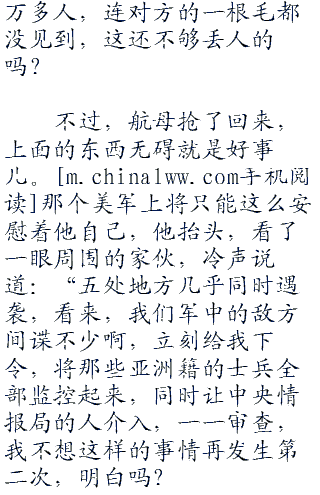 万多人，连对方的一根毛都
没见到，这还不够丢人的
吗？
不过，航母抢了回来，
上面的东西无碍就是好事
儿。[m.chinalww.com手机阅
读]那个美军上将只能这么安
慰着他自己，他抬头，看了
一眼周围的家伙，冷声说
道：“五处地方几乎同时遇
袭，看来，我们军中的敌方
间谍不少啊，立刻给我下
令，将那些亚洲籍的士兵全
部监控起来，同时让中央情
报局的人介入，一一审查，
我不想这样的事情再发生第
二次，明白吗？